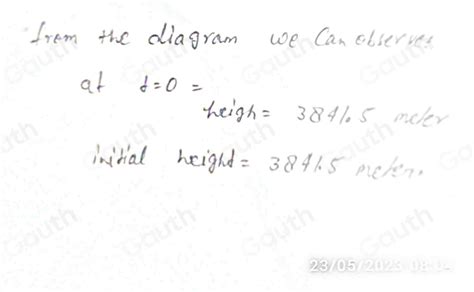 from the diagram we can observes
at t=0 =
heigh = 3841.5 meter
initial height = 3841.5 meter.
23/05/2023 08:04